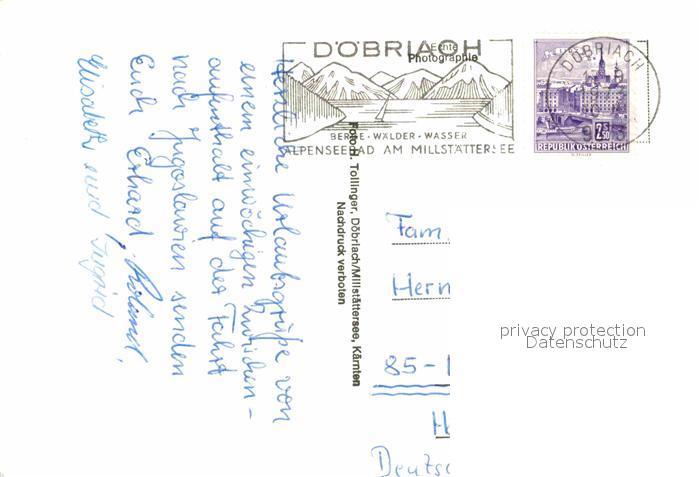 DÖBRIACH
Echte
Photographie
BERGE · WÄLDER · WASSER
ALPENSEEBAD AM MILLSTÄTTERSEE
DÖBRIACH
2.50
REPUBLIK ÖSTERREICH
Herzliche Urlaubsgrüße von
einem einwöchigen Zwischen-
aufenthalt auf der Fahrt
nach Jugoslawien senden
Euch Erhard, Roland,
Elisabeth und Ingrid
Foto H. Tollinger, Döbriach/Millstättersee, Kärnten
Nachdruck verboten
Fam.
Hern
85-
Deutsc
privacy protection
Datenschutz